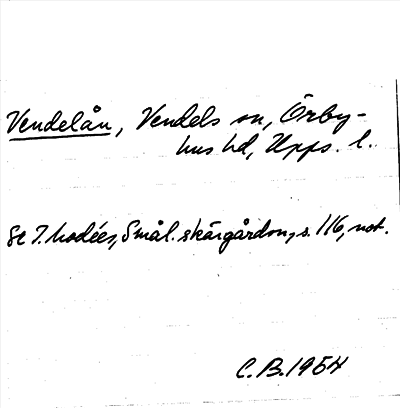 Vendelån, Vendels sn, Örby-
hus hd, Upps. l.
Se T. Modéer, Smål. skärgårdon, s. 116, not.
C.B. 1954